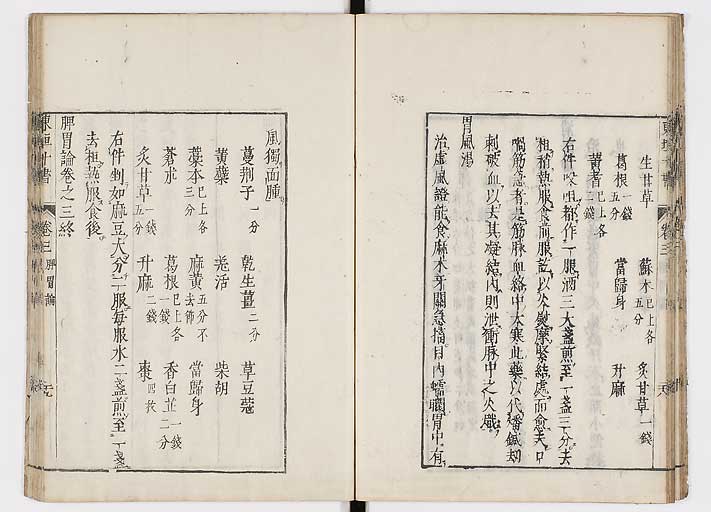 生甘草 蘇木已上各五分 炙甘草一錢
葛根一錢五分 當歸身 升麻
黃耆已上各二錢
右件㕮咀都作一服酒三大盞煎至一盞三分去
柤稍熱服食前服訖以火熨摩緊結處而愈夫口
喎筋急者是筋脉血絡中大寒此藥以代燔鍼劫
刺破血以去其凝結內則泄衝脉中之火熾
胃風湯
治虛風證能食麻木牙關急搐目內蠕瞤胃中有
風獨面腫
蔓荆子一分 乾生薑二分 草豆蔻
黃蘗 羌活 柴胡
藁本已上各三分 麻黃五分不去節 當歸身
蒼朮 葛根已上各一錢 香白芷一錢二分
炙甘草一錢五分 升麻二錢 棗四枚
右件剉如麻豆大分二服每服水二盞煎至一盞
去柤熱服食後
脾胃論卷之三終
東垣十書 卷三 脾胃論